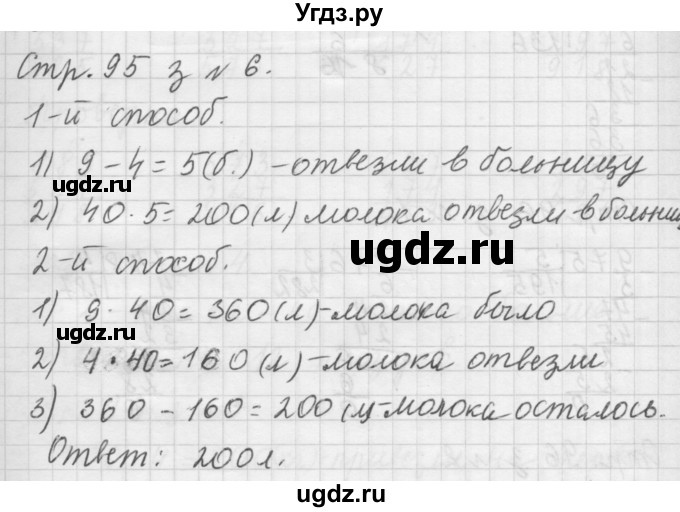 Стр. 95 з № 6.
1-й способ.
1) 9 - 4 = 5(б.) - отвезли в больницу
2) 40 · 5 = 200(л) молока отвезли - в больниц
2-й способ.
1) 9 · 40 = 360(л) - молока было
2) 4 · 40 = 160(л) - молока отвезли
3) 360 - 160 = 200 (л) - молока осталось.
Ответ: 200л.
ugdz.ru
ugdz.ru
ugdz.ru
ugdz.ru
Угдз.ру